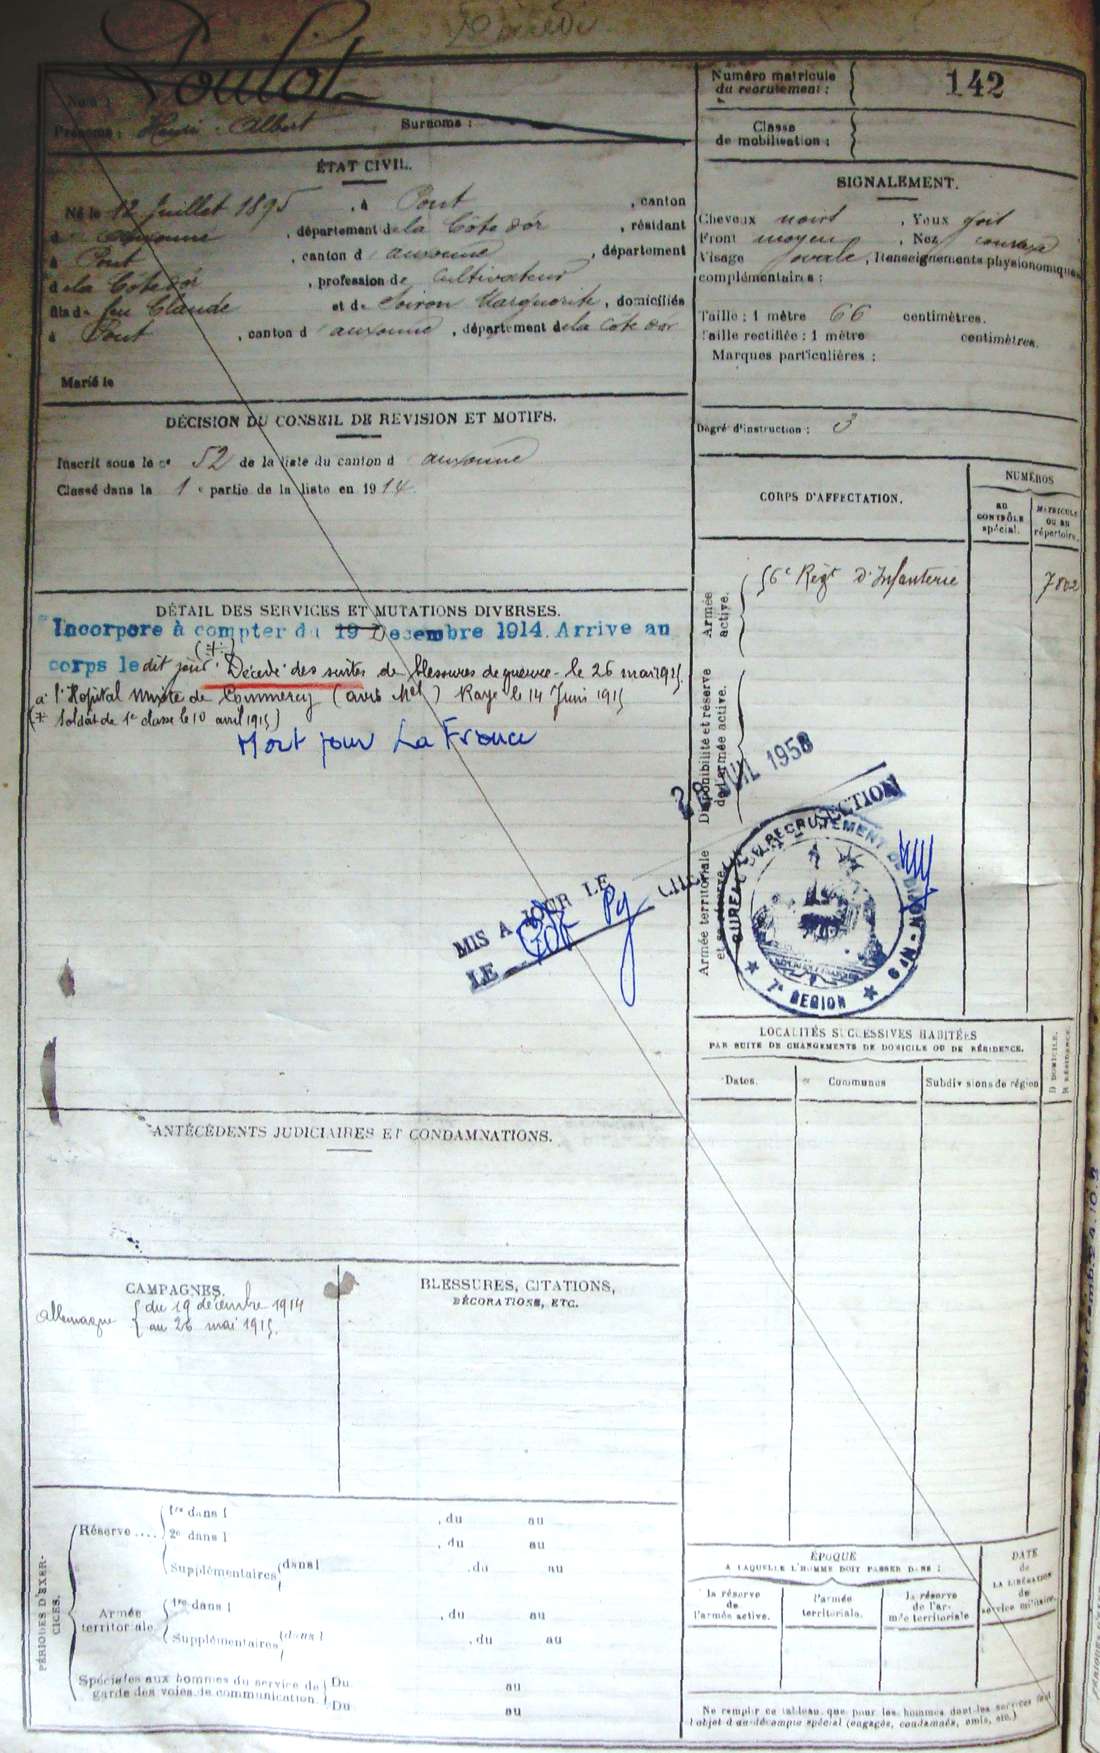 Décédé
Poulot
Nom :
Prénoms : Henri Albert Surnoms :
Numéro matricule
du recrutement : 142
Classe
de mobilisation :
ÉTAT CIVIL.
Né le 12 Juillet 1895, à Pont, canton
d auxonne, département de la Côte d'or, résidant
à Pont, canton d auxonne, département
d la Côte d'or, profession de cultivateur
fils de feu Claude et de Marguerite, domiciliés
à Pont, canton d auxonne, département de la Côte d'or
Marié le
SIGNALEMENT.
Cheveux noirs, Yeux
Front moyen, Nez
Visage ovale, Renseignements physionomiques
complémentaires :
Taille : 1 mètre 66 centimètres.
Taille rectifiée : 1 mètre centimètres.
Marques particulières :
Degré d'instruction : 3
DÉCISION DU CONSEIL DE REVISION ET MOTIFS.
Inscrit sous le n° 52 de la liste du canton d auxonne
Classé dans la 1e partie de la liste en 1914
CORPS D'AFFECTATION.
NUMÉROS
AU CONTRÔLE spécial.
MATRICULE OU AU répertoire.
Armée active.
56e Régt d'Infanterie 7802
Disponibilité et réserve de l'armée active.
Armée territoriale et sa réserve.
DÉTAIL DES SERVICES ET MUTATIONS DIVERSES.
Incorporé à compter du 19 Decembre 1914. Arrive au
corps le dit jour. (*) Décédé des suites de blessures de guerre le 26 mai 1915
à l'Hopital mixte de Commercy (avis Mel) Rayé le 14 Juin 1915
(* Soldat de 1e classe le 10 avril 1915)
Mort pour La France
28 JUIL 1958
MIS A JOUR LE
LE
SECTION
BUREAU DE RECRUTEMENT DE DIJON - N° 9
7e REGION
LOCALITÉS SUCCESSIVES HABITÉES
PAR SUITE DE CHANGEMENTS DE DOMICILE OU DE RÉSIDENCE.
Dates.
Communes
Subdivisions de région
D DOMICILE.
R RÉSIDENCE.
ANTÉCÉDENTS JUDICIAIRES ET CONDAMNATIONS.
CAMPAGNES.
allemagne { du 19 décembre 1914
{ au 26 mai 1915.
BLESSURES, CITATIONS,
DÉCORATIONS, ETC.
PÉRIODES D'EXERCICES.
Réserve .... 1re dans l , du au
2e dans l , du au
Supplémentaires dans l , du au
Armée territoriale. 1re dans l , du au
Supplémentaires dans l , du au
Spéciales aux hommes du service de Du au
garde des voies de communication. Du au
ÉPOQUE
A LAQUELLE L'HOMME DOIT PASSER DANS :
la réserve de l'armée active.
l'armée territoriale.
la réserve de l'armée territoriale
DATE de LA LIBÉRATION du service militaire.
Ne remplir ce tableau que pour les hommes dont les services font
l'objet d'un décompte spécial (engagés, condamnés, omis, etc.)